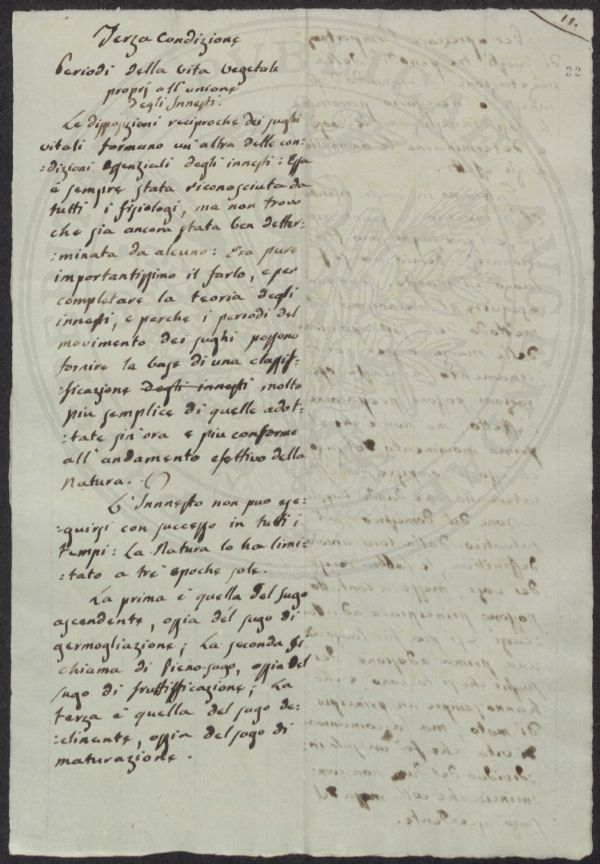 11.
32
Terza Condizione
Periodi della vita vegetale
proprj all'unione
degli Innesti.
Le disposizioni reciproche dei sughi
vitali formano un'altra delle con:
:dizioni essenziali degli innesti: Essa
è sempre stata riconosciuta da
tutti i fisiologi, ma non trovo
che sia ancora stata ben detter:
:minata da alcuno: Era pure
importantissimo il farlo, e per
completare la teoria degli
innesti, e perche i periodi del
movimento dei sughi possono
fornire la base di una classif:
:ficazione degli innesti molto
più semplice di quelle adot:
:tate sin'ora e più conforme
all'andamento efettivo della
Natura. ()
L'Innnesto non può ese:
:guirsi con successo in tutti i
tempi: La Natura lo ha limi:
:tato a tre epoche sole.
La prima è quella del sugo
ascendente, ossia del sugo di
germogliazione; La seconda si
chiama di Pieno-sugo, ossia del
sugo di fruttifficazione; La
terza è quella del sugo de:
:clinente, ossia del sugo di
maturazione.